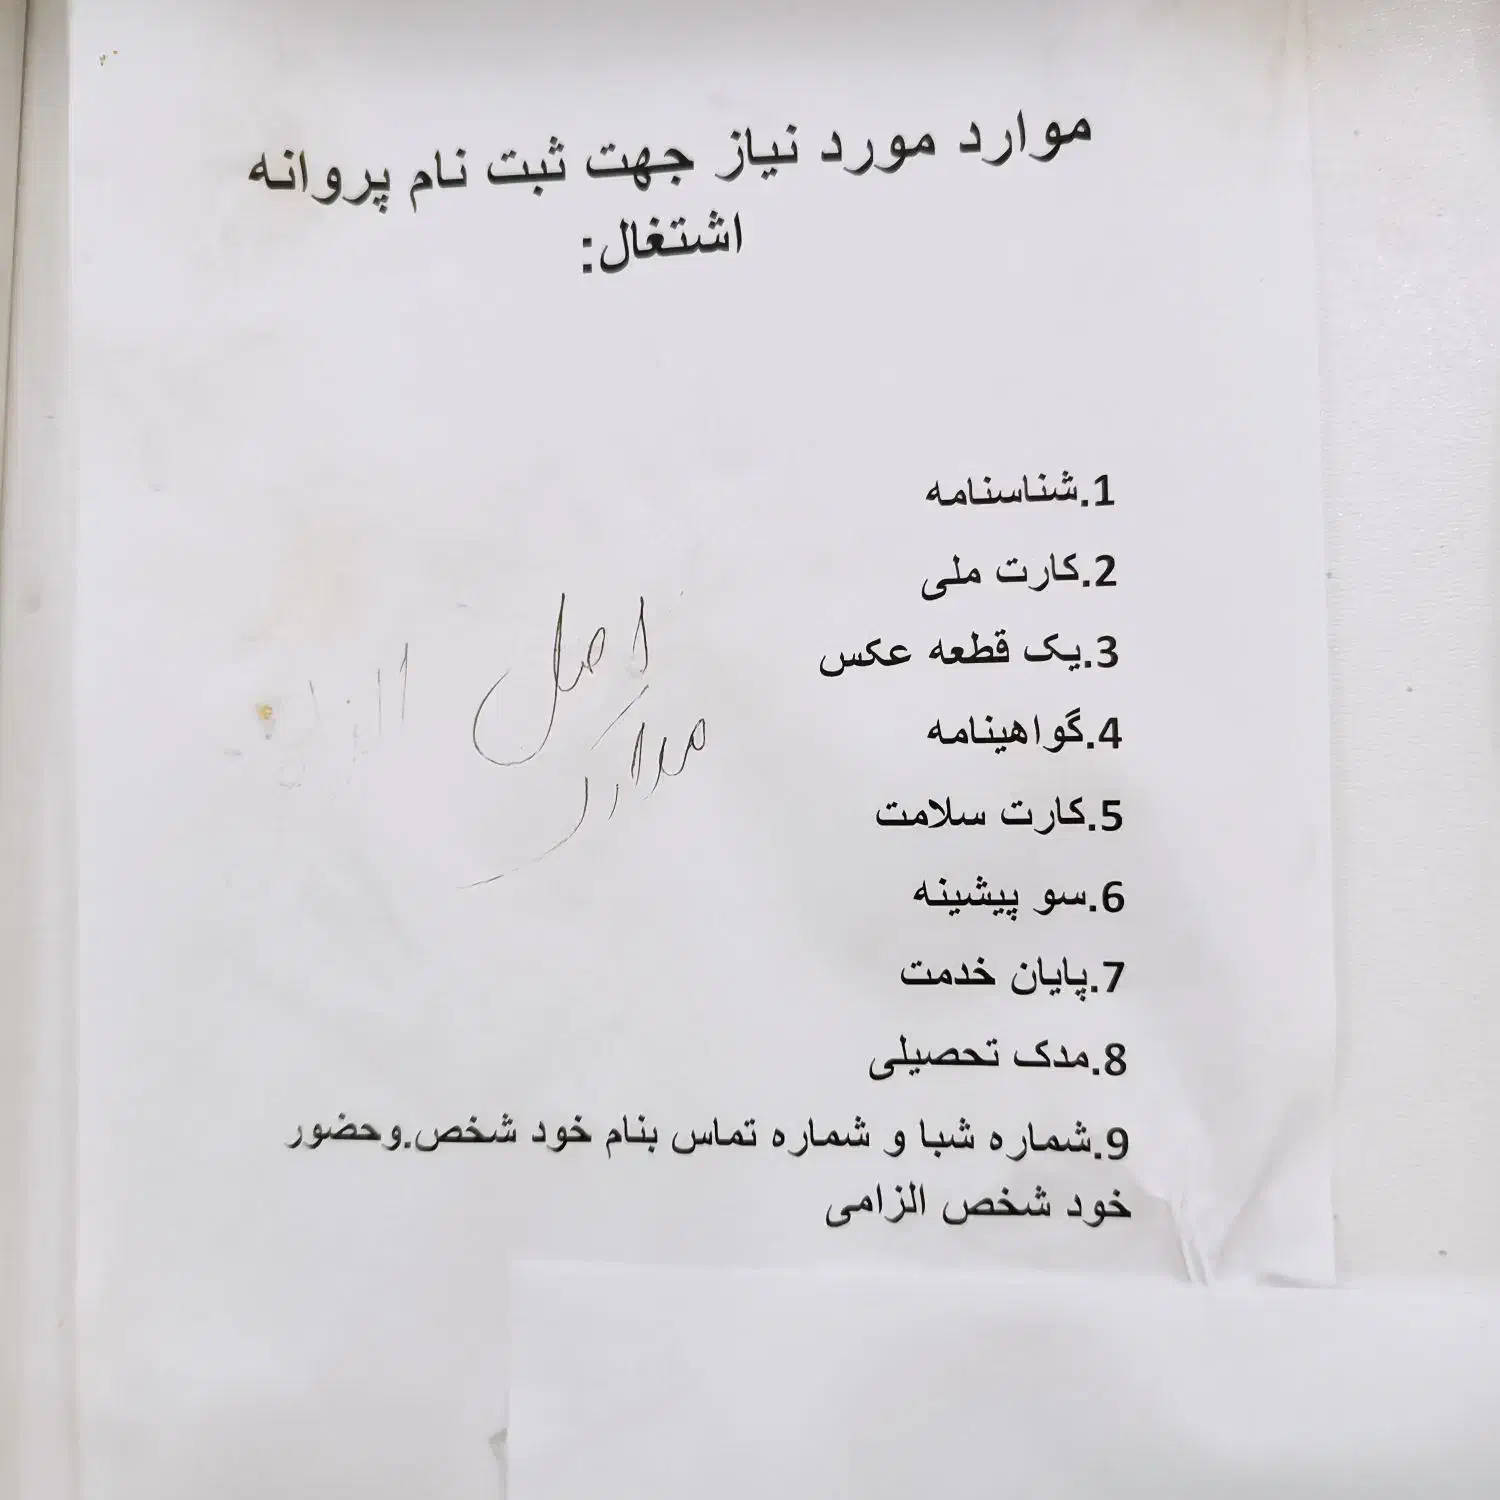 موارد مورد نیاز جهت ثبت نام پروانه
اشتغال:
1.شناسنامه
2.کارت ملی
3.یک قطعه عکس
4.گواهینامه
5.کارت سلامت
6.سو پیشینه
7.پایان خدمت
8.مدک تحصیلی
9.شماره شبا و شماره تماس بنام خود شخص.وحضور
خود شخص الزامی
اصل
مدارک